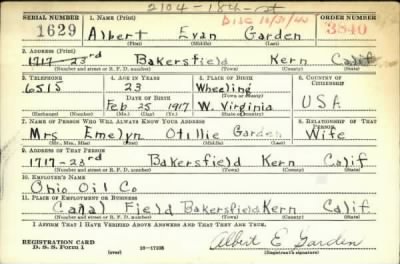 2104-18th-st
SERIAL NUMBER 1. NAME (Print) ORDER NUMBER
1629 Albert Evan Garden Disc 10/31/40 3840
(First) (Middle) (Last)
2. ADDRESS (Print)
1717-23rd Bakersfield Kern Calif
(Number and street or R. F. D. number) (Town) (County) (State)
3. TELEPHONE 4. AGE IN YEARS 5. PLACE OF BIRTH 6. COUNTRY OF CITIZENSHIP
6515 23 Wheeling
DATE OF BIRTH (Town or county)
Feb 25 1917 W. Virginia USA
(Exchange) (Number) (Mo.) (Day) (Yr.) (State or country)
7. NAME OF PERSON WHO WILL ALWAYS KNOW YOUR ADDRESS 8. RELATIONSHIP OF THAT PERSON
Mrs Emelyn Otillie Garden Wife
(Mr., Mrs., Miss) (First) (Middle) (Last)
9. ADDRESS OF THAT PERSON
1717-23rd Bakersfield Kern Calif
(Number and street or R. F. D. number) (Town) (County) (State)
10. EMPLOYER'S NAME
Ohio Oil Co
11. PLACE OF EMPLOYMENT OR BUSINESS
Canal Field Bakersfield Kern Calif.
(Number and street or R. F. D. number) (Town) (County) (State)
I AFFIRM THAT I HAVE VERIFIED ABOVE ANSWERS AND THAT THEY ARE TRUE.
REGISTRATION CARD
D. S. S. Form 1 (over) 16-17105 Albert E Garden
(Registrant's signature)